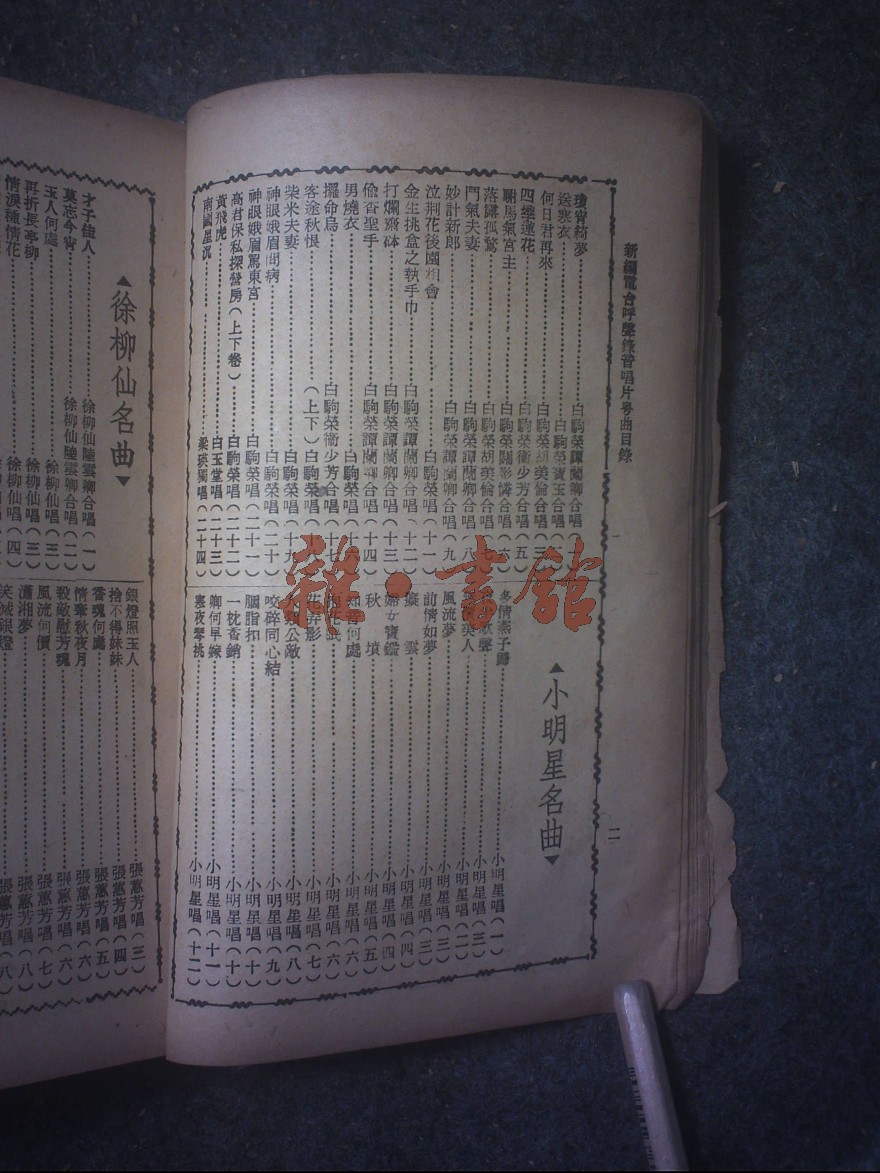 新編電台呼聲錄音唱片粵曲目錄
二
瓊宵綺夢 白駒榮譚蘭卿合唱
送寒衣 白駒榮寶玉合唱
何日君再來 白駒榮胡美倫合唱(三)
四季蓮花 白駒榮衛少芳合唱(五)
駙馬氣宮主 白駒榮關影憐合唱(六)
落霞孤鶩 白駒榮胡美倫合唱(七)
鬥氣夫妻 白駒榮譚蘭卿合唱(八)
妙計新郎 白駒榮譚蘭卿合唱(九)
泣荆花後園相會 白駒榮唱(十一)
金生挑盒之執手巾 白駒榮譚蘭卿合唱(十二)
打爛齋砵 白駒榮譚蘭卿合唱(十三)
偷香聖手 白駒榮譚蘭卿合唱(十四)
男燒衣 白駒榮唱(十六)
擺命烏 白駒榮衛少芳合唱(十七)
客途秋恨 (上下)白駒榮唱(十八)
柴米夫妻 白駒榮唱(十九)
神眼娥眉問病 白駒榮唱(二十)
神眼娥眉罵東宮 白駒榮唱(二十一)
高君保私探營房(上下卷) 白駒榮唱(二十二)
黃飛虎 白玉堂唱(二十三)
南國星沉 梁瑛獨唱(二十四)
▲小明星名曲▼
多情燕子歸 小明星唱(一)
小明星唱(三)
美人 小明星唱(二)
風流夢 小明星唱(三)
前情如夢 小明星唱(三)
癡雲 小明星唱(四)
婦女寶鑑 小明星唱(四)
秋墳 小明星唱(五)
知音何處 小明星唱(六)
小明星唱(六)
花弄影 小明星唱(七)
人類公敵 小明星唱(八)
咬碎同心結 小明星唱(九)
胭脂扣 小明星唱(十)
一枕香銷 小明星唱(十)
卿何早嫁 小明星唱(十一)
寒夜琴挑 小明星唱(十二)
▲徐柳仙名曲▼
才子佳人 徐柳仙陸雲卿合唱(一)
莫忘今宵 徐柳仙陸雲卿合唱(二)
玉人何處 徐柳仙唱(三)
再折長亭柳 徐柳仙唱(三)
情淚種情花 徐柳仙唱(四)
銀燈照玉人 張蕙芳唱(三)
捨不得妹妹 張蕙芳唱(四)
香魂何處 張蕙芳唱(五)
情奪秋夜月 張蕙芳唱(六)
殺敵慰芳魂 張蕙芳唱(六)
風流何價 張蕙芳唱(七)
瀟湘夢 張蕙芳唱(八)
笑滅銀燈 張蕙芳唱(八)
雜·書館